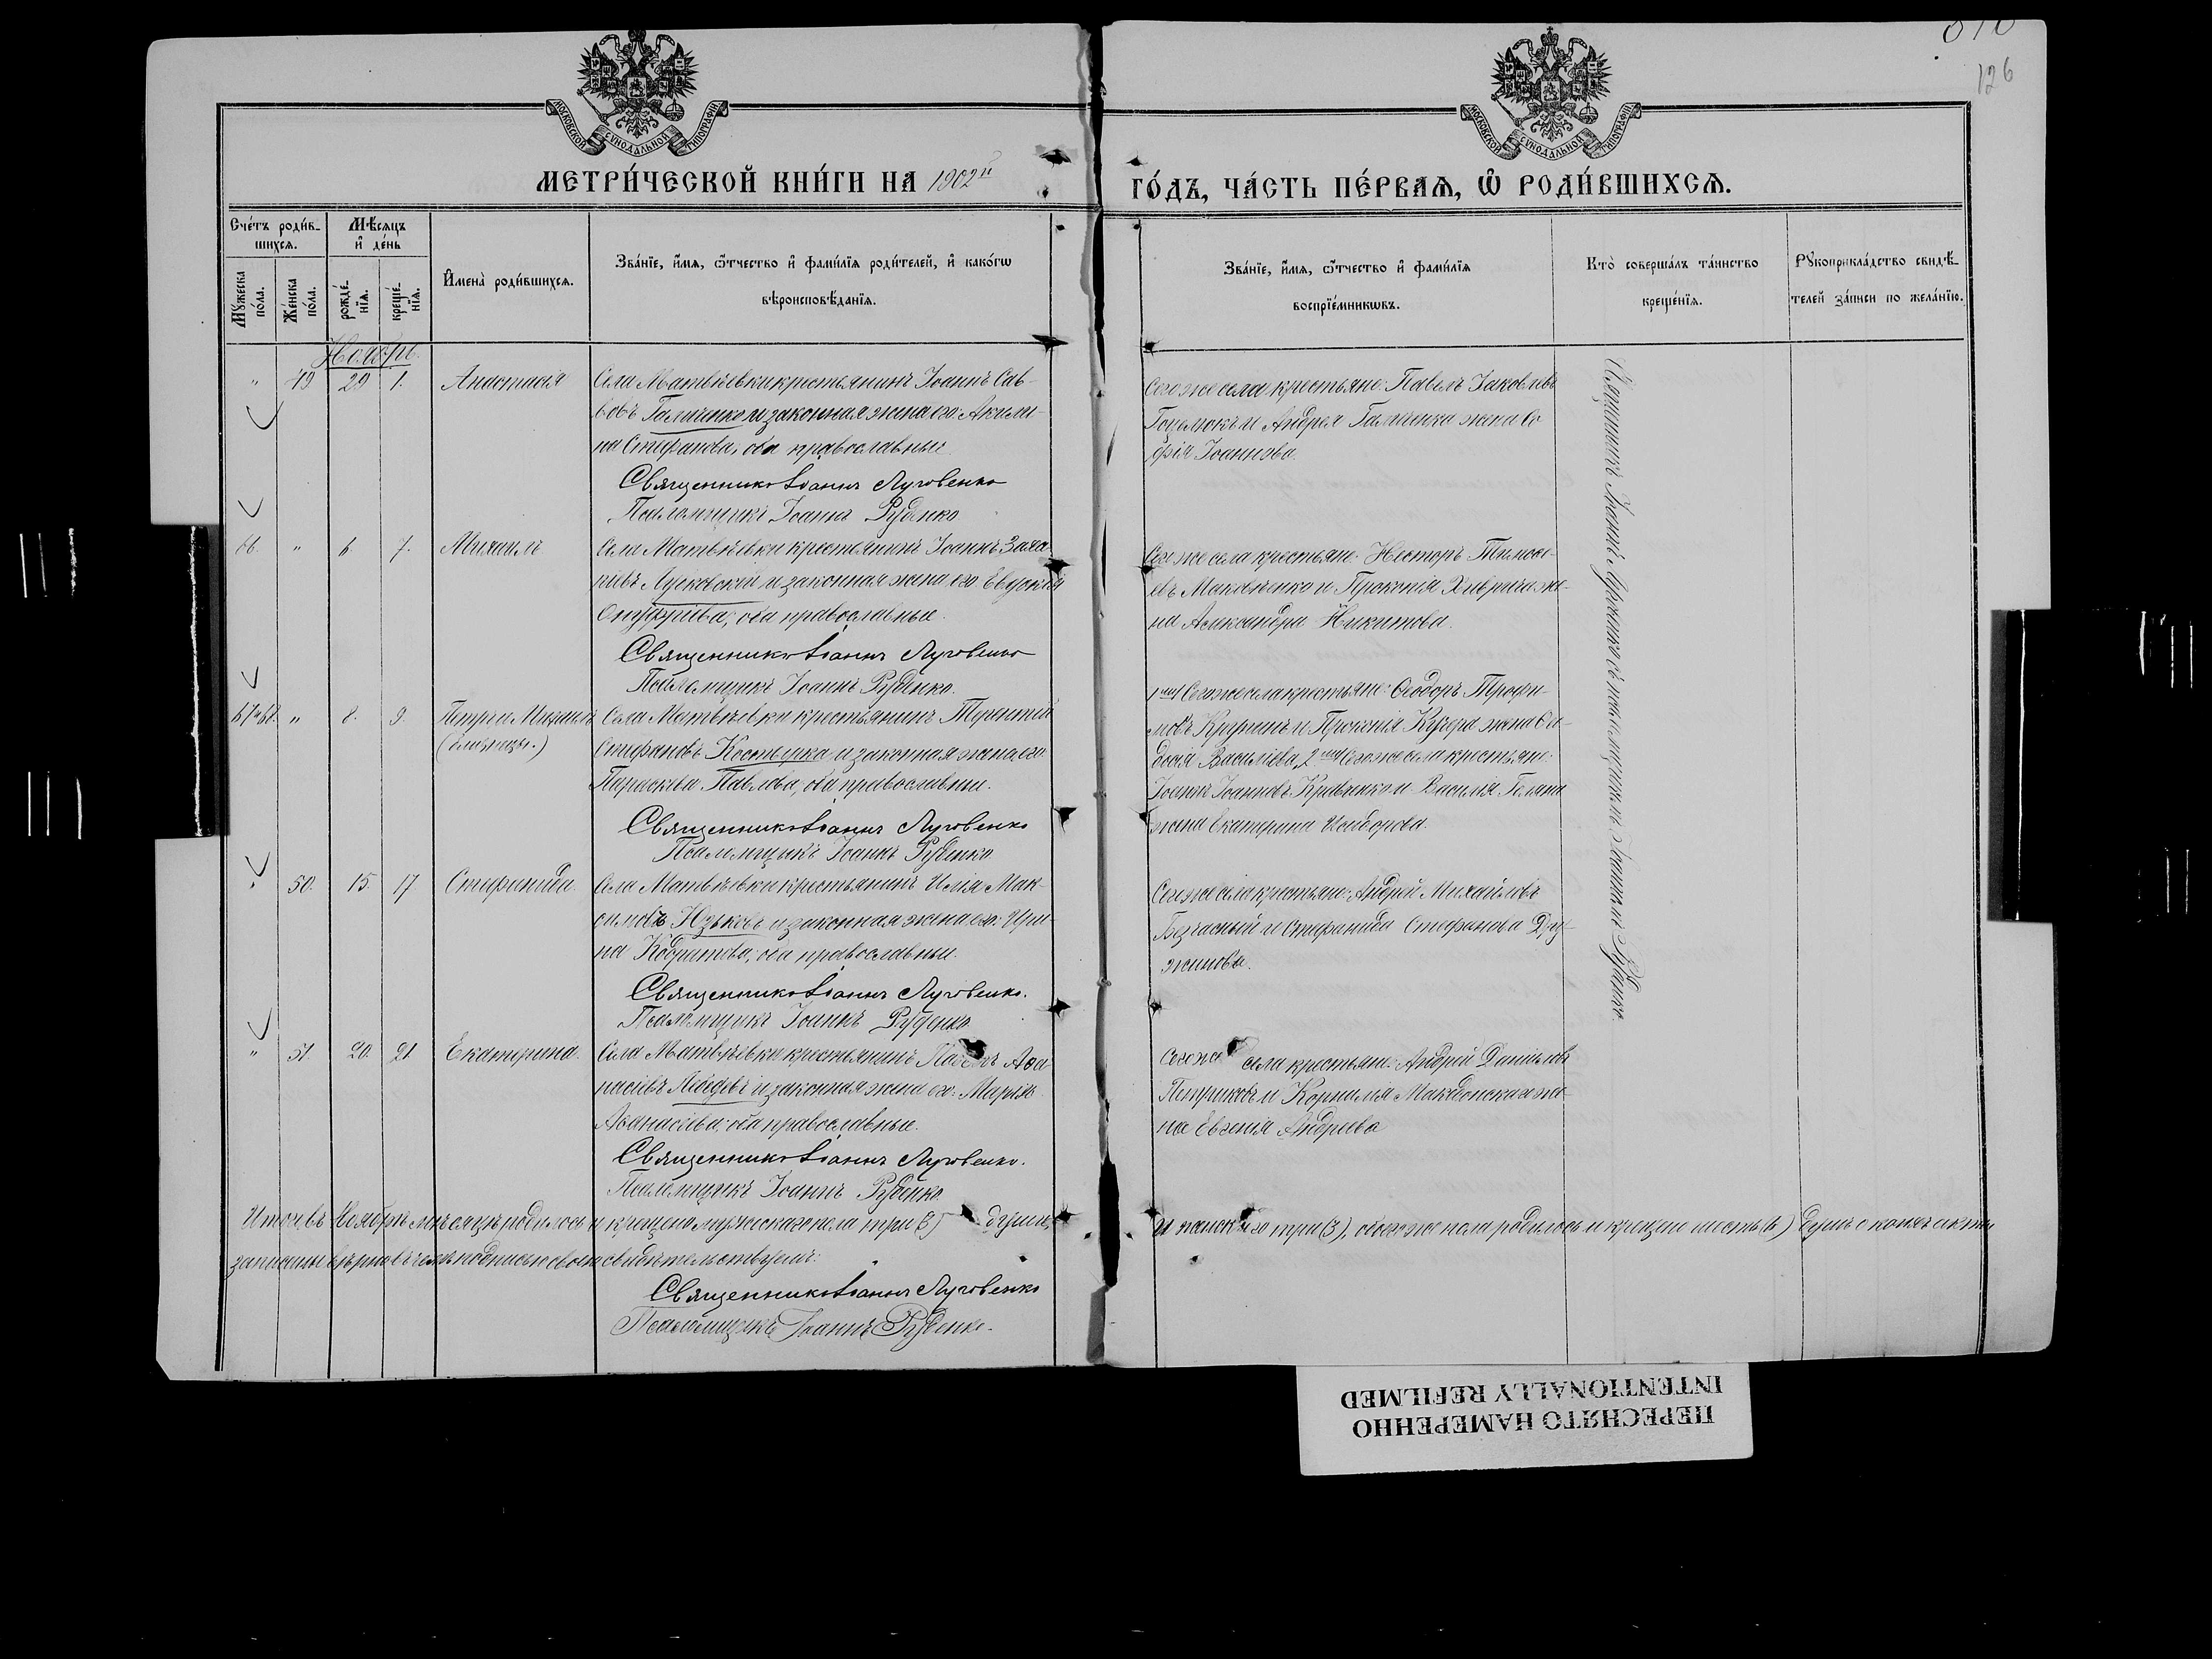 126
МОСКОВСКОЙ СѴНОДАЛЬНОЙ ТИПОГРАФІИ
МОСКОВСКОЙ СѴНОДАЛЬНОЙ ТИПОГРАФІИ
МЕТРИ́ЧЕСКОЙ КНИ́ГИ НА 1902й
ГО́ДЪ, ЧА́СТЬ ПЕ́РВАѦ, Ѡ҆ РОДИ́ВШИХСѦ.
Сче́тъ роди́в-
шихсѧ.
Мѣ́сѧцъ
и҆ де́нь
Мꙋ́жеска
по́ла.
Же́нска
по́ла.
рожде́-
нїѧ.
креще́-
нїѧ.
И҆мена̀ роди́вшихсѧ.
Зва́нїе, и҆́мѧ, ѻ҆́тчество и҆ фами́лїѧ роди́телей, и҆ како́гѡ
вѣроисповѣ́данїѧ.
Зва́нїе, и҆́мѧ, ѻ҆́тчество и҆ фами́лїѧ
воспрїе́мникѡвъ.
Кто̀ соверша́лъ та́инство
креще́нїѧ.
Рꙋкоприкла́дство свидѣ́-
телей за́писи по жела́нїю.
Ноябрь.
" 49 29 1. Анастасія
Села Матвѣевки крестьянинъ Іоаннъ Сав-
вовъ и законная жена его Акили-
на Стефанова, оба православные.
Священникъ Іоаннъ Луговенко
Псаломщикъ Іоаннъ Руденко
Сего же села крестьяне: Павелъ Іаковлевъ
и Андрея жена Со
фія Іоаннова.
66. " 6. 7. Михаилъ
Села Матвѣевки крестьянинъ Іоаннъ Заха-
ріевъ и законная жена его Евдокія
Онуфріева, оба православные.
Священникъ Іоаннъ Луговенко
Псаломщикъ Іоаннъ Руденко.
Сего же села крестьяне: Несторъ Тимоѳе-
евъ и Прокопія же-
на Александра Никитова.
67 и 68. " 8. 9. Петръ и Михаилъ
(близнецы.)
Села Матвѣевки крестьянинъ Терентій
Стефановъ и законная жена его
Параскева Павлова, оба православные.
Священникъ Іоаннъ Луговенко
Псаломщикъ Іоаннъ Руденко
Сего же села крестьяне: Ѳеодоръ Трофи-
мовъ и Прокопія Кучера жена Ѳео-
досія Василіева, 2 Сего же села крестьяне:
Іоаннъ Іоанновъ и Василія
жена Екатерина Исидорова.
" 50. 15. 17 Стефанида.
Села Матвѣевки крестьянинъ Илія Мак-
симовъ и законная жена его: Ири-
на Кодратова, оба православные.
Священникъ Іоаннъ Луговенко.
Псаломщикъ Іоаннъ Руденко
Сего же села крестьяне: Андрей Михайловъ
Безчасный и Стефанида Стефанова Дру-
жинова.
" 51. 20. 21 Екатерина.
Села Матвѣевки крестьянинъ Аѳа-
насіевъ Лебедевъ и законная жена его: Марія
Аѳанасіева, оба православные.
Священникъ Іоаннъ Луговенко.
Псаломщикъ Іоаннъ Руденко
Сего же села крестьяне: Андрей Даніиловъ
и Корнилія же-
на Евгенія Андреева
Священникъ Іоаннъ Луговенко съ псаломщикомъ Іоанномъ Руденко
Итого въ Ноябрѣ мѣсяцѣ родилось и крещено мужескаго пола три (3) души,
и женскаго три (3), обоего же пола родилось и крещено шесть (6) душъ о коихъ акты
записаны вѣрно въ чемъ подписью своею свидѣтельствуемъ:
Священникъ Іоаннъ Луговенко
Псаломщикъ Іоаннъ Руденко.
ПЕРЕСНЯТО НАМЕРЕННО
INTENTIONALLY REFILMED